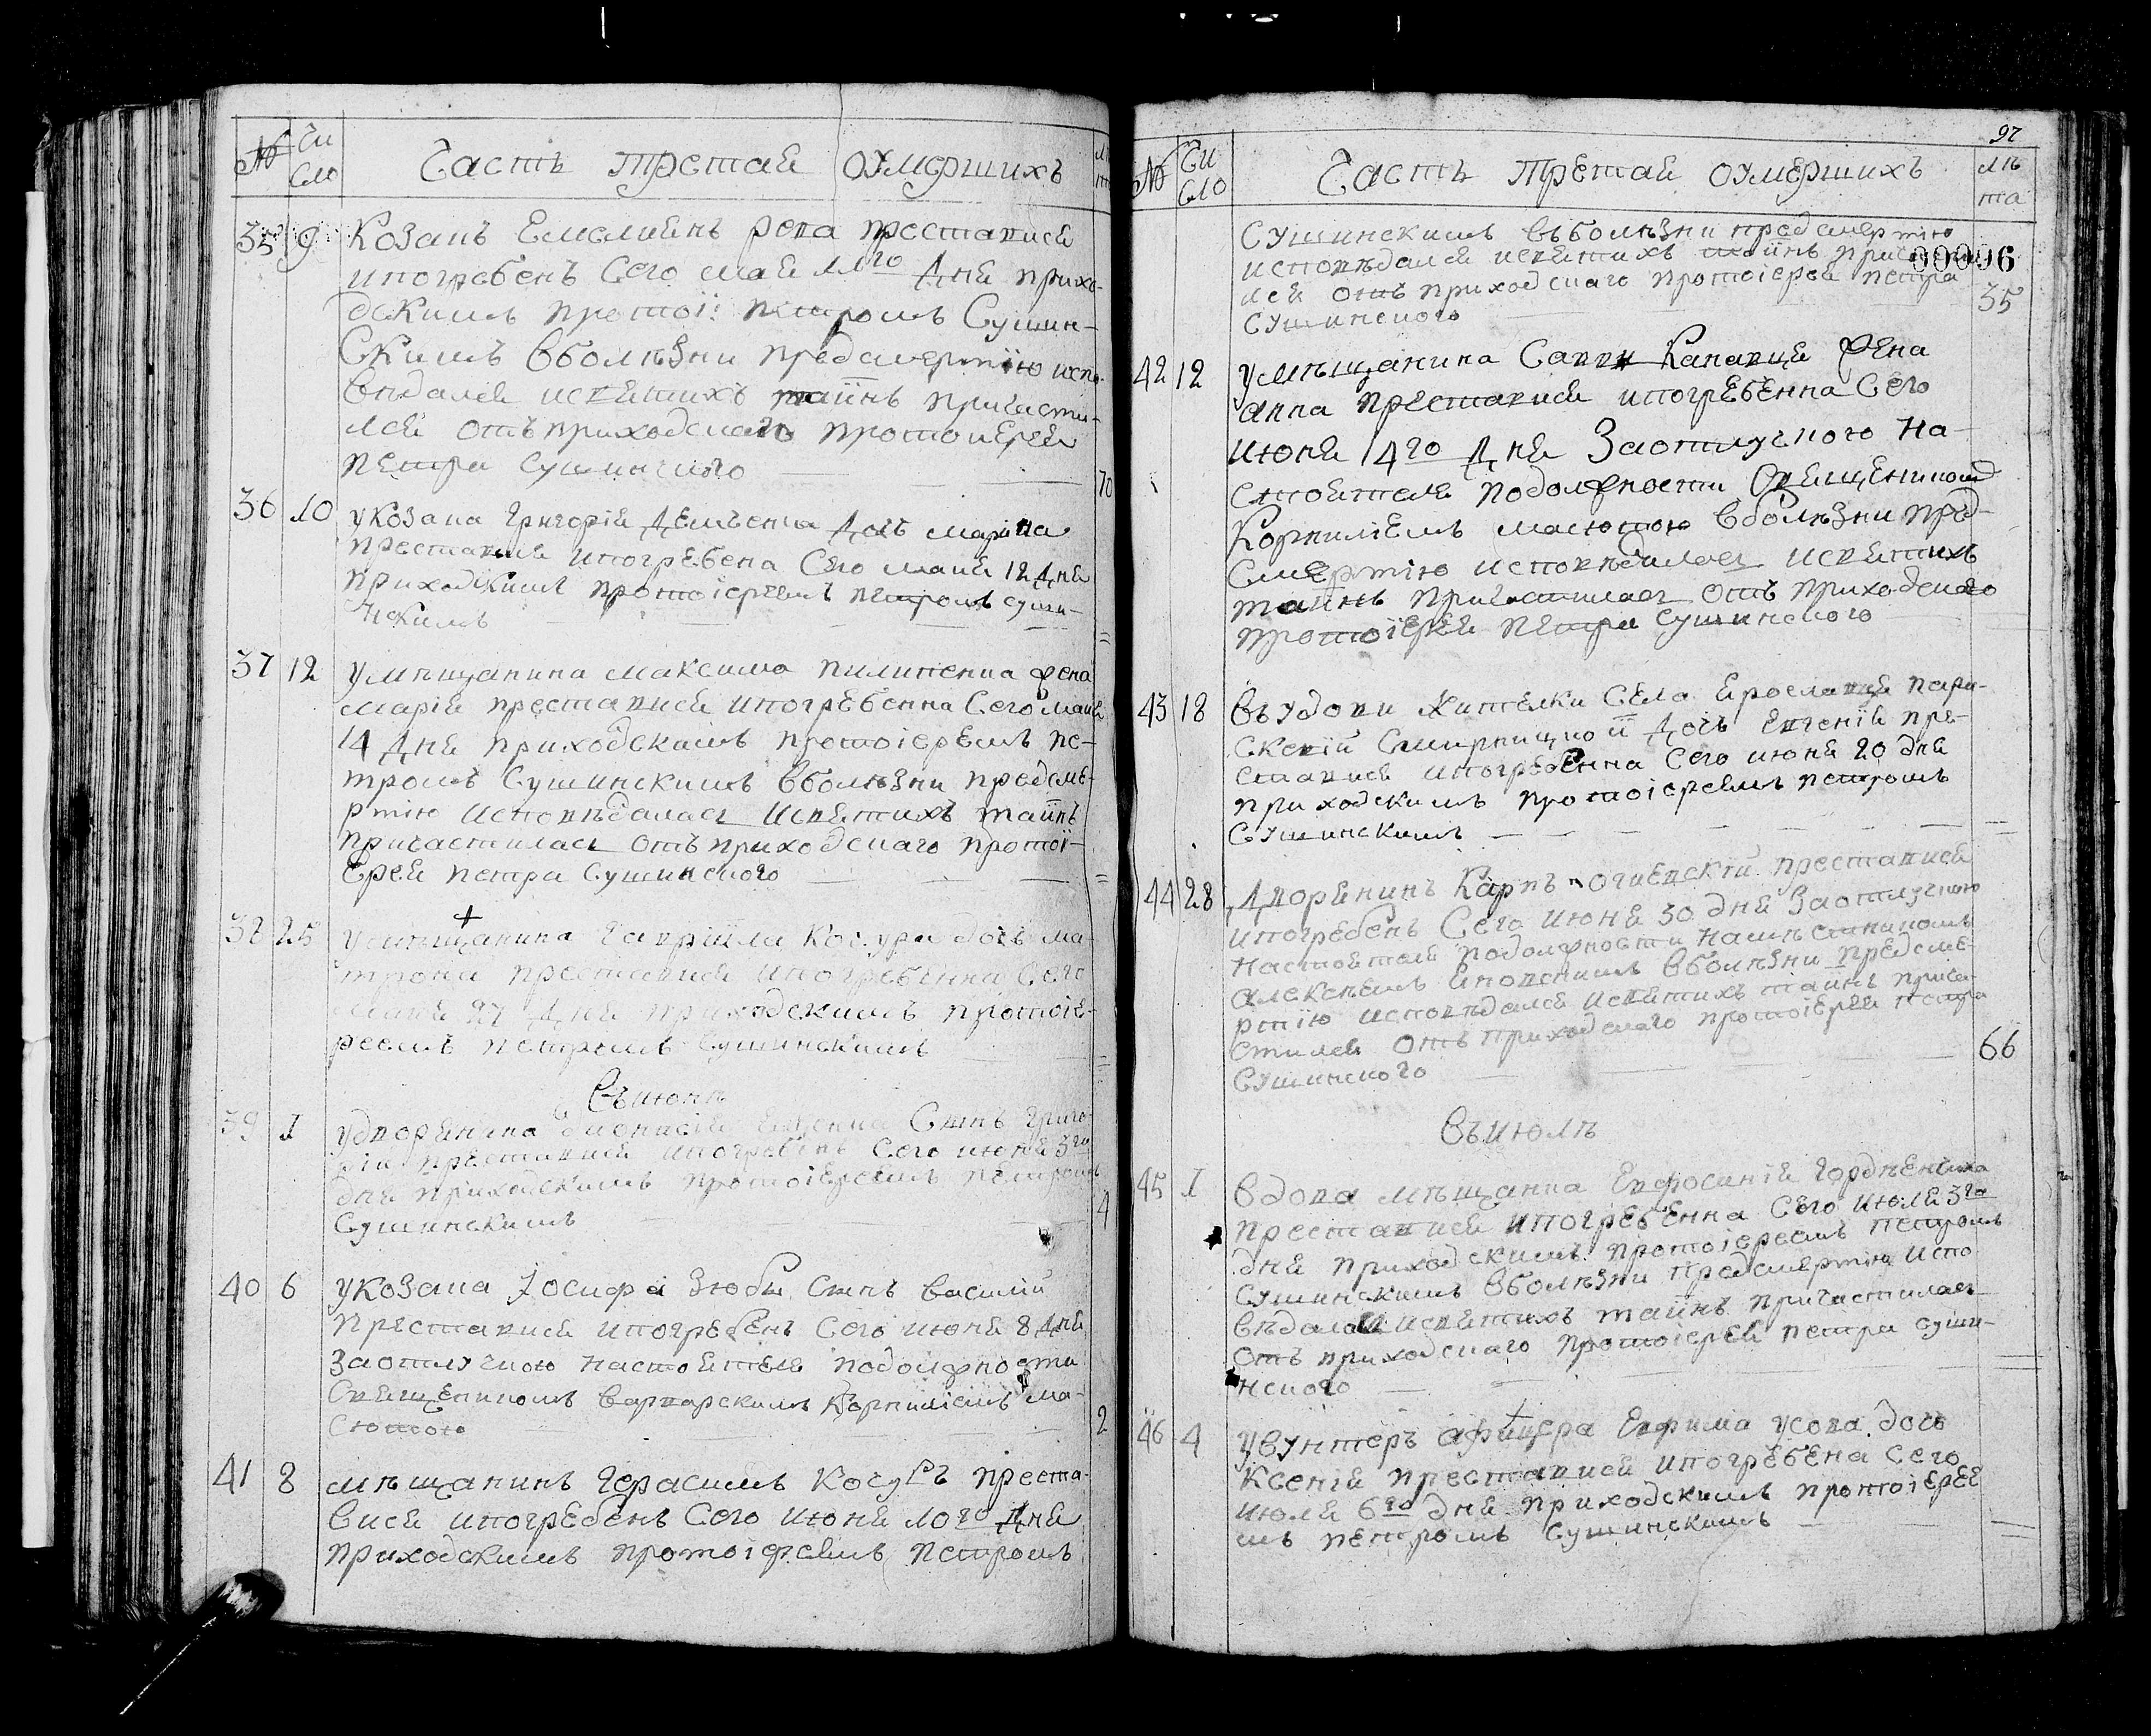 № Чи
сло
Часть третая оумершихъ
35 9 Козакъ Емелианъ репа преставися
и погребенъ Сего мая 11го Дня прихо-
дскимъ протоі: петромъ Сушин-
Скимъ вболѣзни предсмертію испо-
вѣдался исвятихъ таинъ причасти-
лся отъ приходскаго протоиерея
петра Сушинского 70
36 10 у козака Григорія Дочь марина
преставися ипогребена Сего мая 12 Дня
приходскимъ протоіереемъ петромъ суши-
нскимъ
37 12 умѣщанина максима пилипенка жена
марія преставися ипогребенна Сего мая
14 Дня приходскимъ протоіереемъ пе-
тромъ Сушинскимъ вболѣзни предсме-
ртію исповѣдалась исвятихъ таинъ
причастилась отъ приходскаго протоі-
ерея петра Сушинского
38 25 умѣщанина гавриила дочь ма-
трона преставися ипогребенна Сего
мая 27 Дня приходскимъ протоіе-
реемъ петромъ Сушинскимъ
Въ июнѣ
39 1 удворянина Синъ Григо-
рій преставися ипогребенъ Сего июня 3го
дня приходскимъ протоіереемъ петромъ
Сушинскимъ 4
40 6 укозака Іосифа Зюби Синъ василий
преставися ипогребенъ Сего июня 8 Дня
Заотлучкою настоятеля подолжности
Священикомъ варварскимъ Корнилиемъ ма-
сютою 2
41 8 мѣщанинъ Герасимъ преста-
вися ипогребенъ Сего июня 10го Дня
приходскимъ протоіереемъ петромъ
97
№ Чи
сло
Часть третая оумершихъ
лѣ
та
Сушинскимъ въболѣзни предсмертію
исповѣдался исвятихъ таинъ 00096
лся отъ приходскаго протоіерея петра
Сушинского 35
42 12 умѣщанина Савви жена
анна преставися ипогребенна Сего
июня 14го Дня Заотлучкою на-
стоятеля подолжности Священикомъ
Корнилиемъ масютою вболѣзни пред-
Смертію исповѣдалась исвятихъ
таинъ причастилась отъ приходскаго
протоіерея петра Сушинского
43 18 въудови жителки Села пара-
скевіи Дочь евгенія пре-
ставися ипогребенна Сего июня 20 дня
приходскимъ протоіереемъ петромъ
Сушинскимъ
44 28 Дворянинъ Карпъ преставися
ипогребенъ Сего июня 30 дня Заотлучкою
настоятеля подолжности намѣстникомъ
алексѣемъ вболѣзни предсме-
ртію исповѣдался исвятихъ таинъ прича-
стился отъ приходскаго протоіерея петра
Сушинского 66
Въ июлѣ
45 1 вдова мѣщанка Евфросинія
преставися ипогребенна Сего июля 3го
дня приходскимъ протоіереемъ петромъ
Сушинскимъ вболѣзни предсмертію испо
вѣдалась исвятихъ таинъ причастилась
отъ приходскаго протоіерея петра суши-
нского
46 4 увунтеръ афицера Евфима усова дочь
Ксенія преставися ипогребена Сего
июля 6го дня приходскимъ протоіерее
мъ петромъ Сушинскимъ